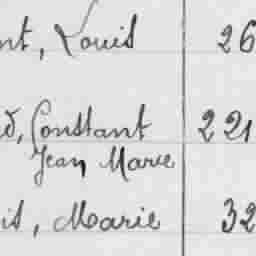 nt, Louis 26
d, Constant 221
Jean Marie
is, Marie 32